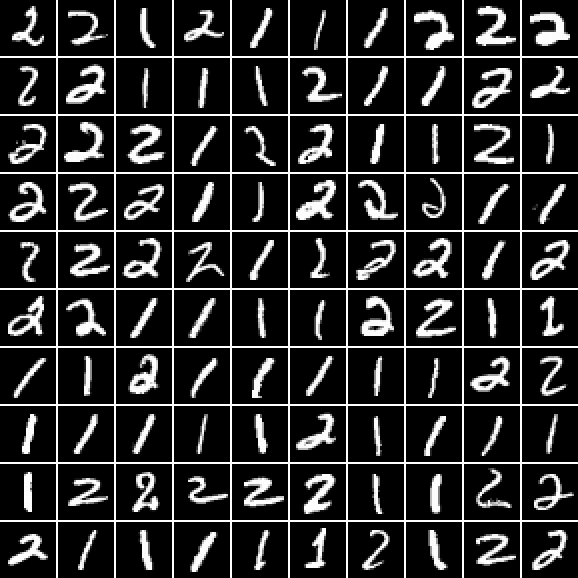 2 2 1 2 1 1 1 2 2 2
2 2 1 1 1 2 1 1 2 2
2 2 2 1 2 2 1 1 2 1
2 2 2 1 1 2 2 2 1 1
2 2 2 2 1 2 2 2 1 2
2 2 1 1 1 1 2 2 1 1
1 1 2 1 1 1 1 1 2 2
1 1 1 1 1 2 1 1 1 1
1 2 2 2 2 2 1 1 2 2
2 1 1 1 1 1 2 1 2 2